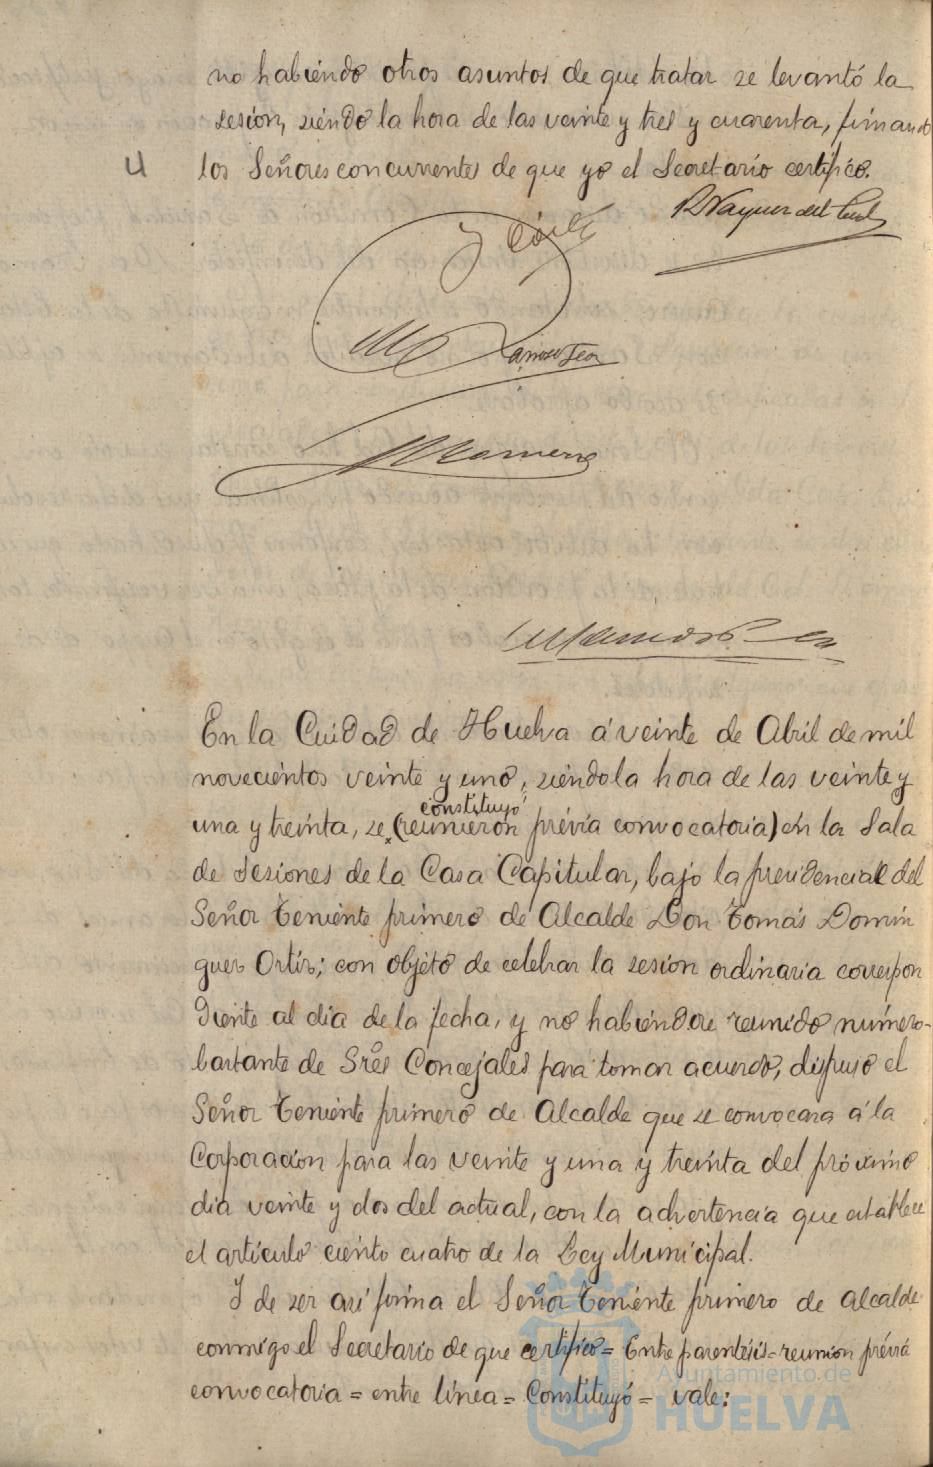 no habiendo otros asuntos de que tratar se levantó la
sesion, siendo la hora de las veinte y tres y cuarenta, firmando
los Señores concurrentes de que yo el Secretario certifico.
En la Cuidad de Huelva á veinte de Abril de mil
novecientos veinte y uno, siendo la hora de las veinte y
constituyó
una y treinta, se (reunieron prévia convocatoria) en la Sala
de Sesiones de la Casa Capitular, bajo la presidencia del
Señor Teniente primero de Alcalde Don Tomás Domin
guez Ortiz; con objeto de celebrar la sesion ordinaria correspon
diente al dia de la fecha, y no habiendose reunido número
bastante de Sres Concejales para tomar acuerdo, dispuso el
Señor Teniente primero de Alcalde que se convocara á la
Corporacion para las veinte y una y treinta del próximo
dia veinte y dos del actual, con la advertencia que establece
el artículo ciento cuatro de la Ley Municipal.
Y de ser asi firma el Señor Teniente primero de Alcalde
conmigo el Secretario de que certifico = Entre parentesis = reunion prévia
convocatoria = entre línea = Constituyó = vale:
Ayuntamiento de
HUELVA